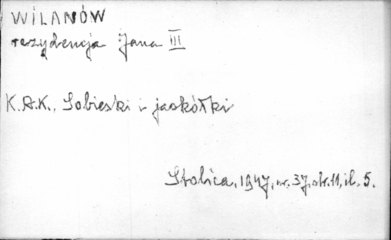 WILANÓW
rezydencja Jana III
K.A.K. Sobieski i jaskółki
Stolica, 1947, nr. 37, str. 11, il. 5.